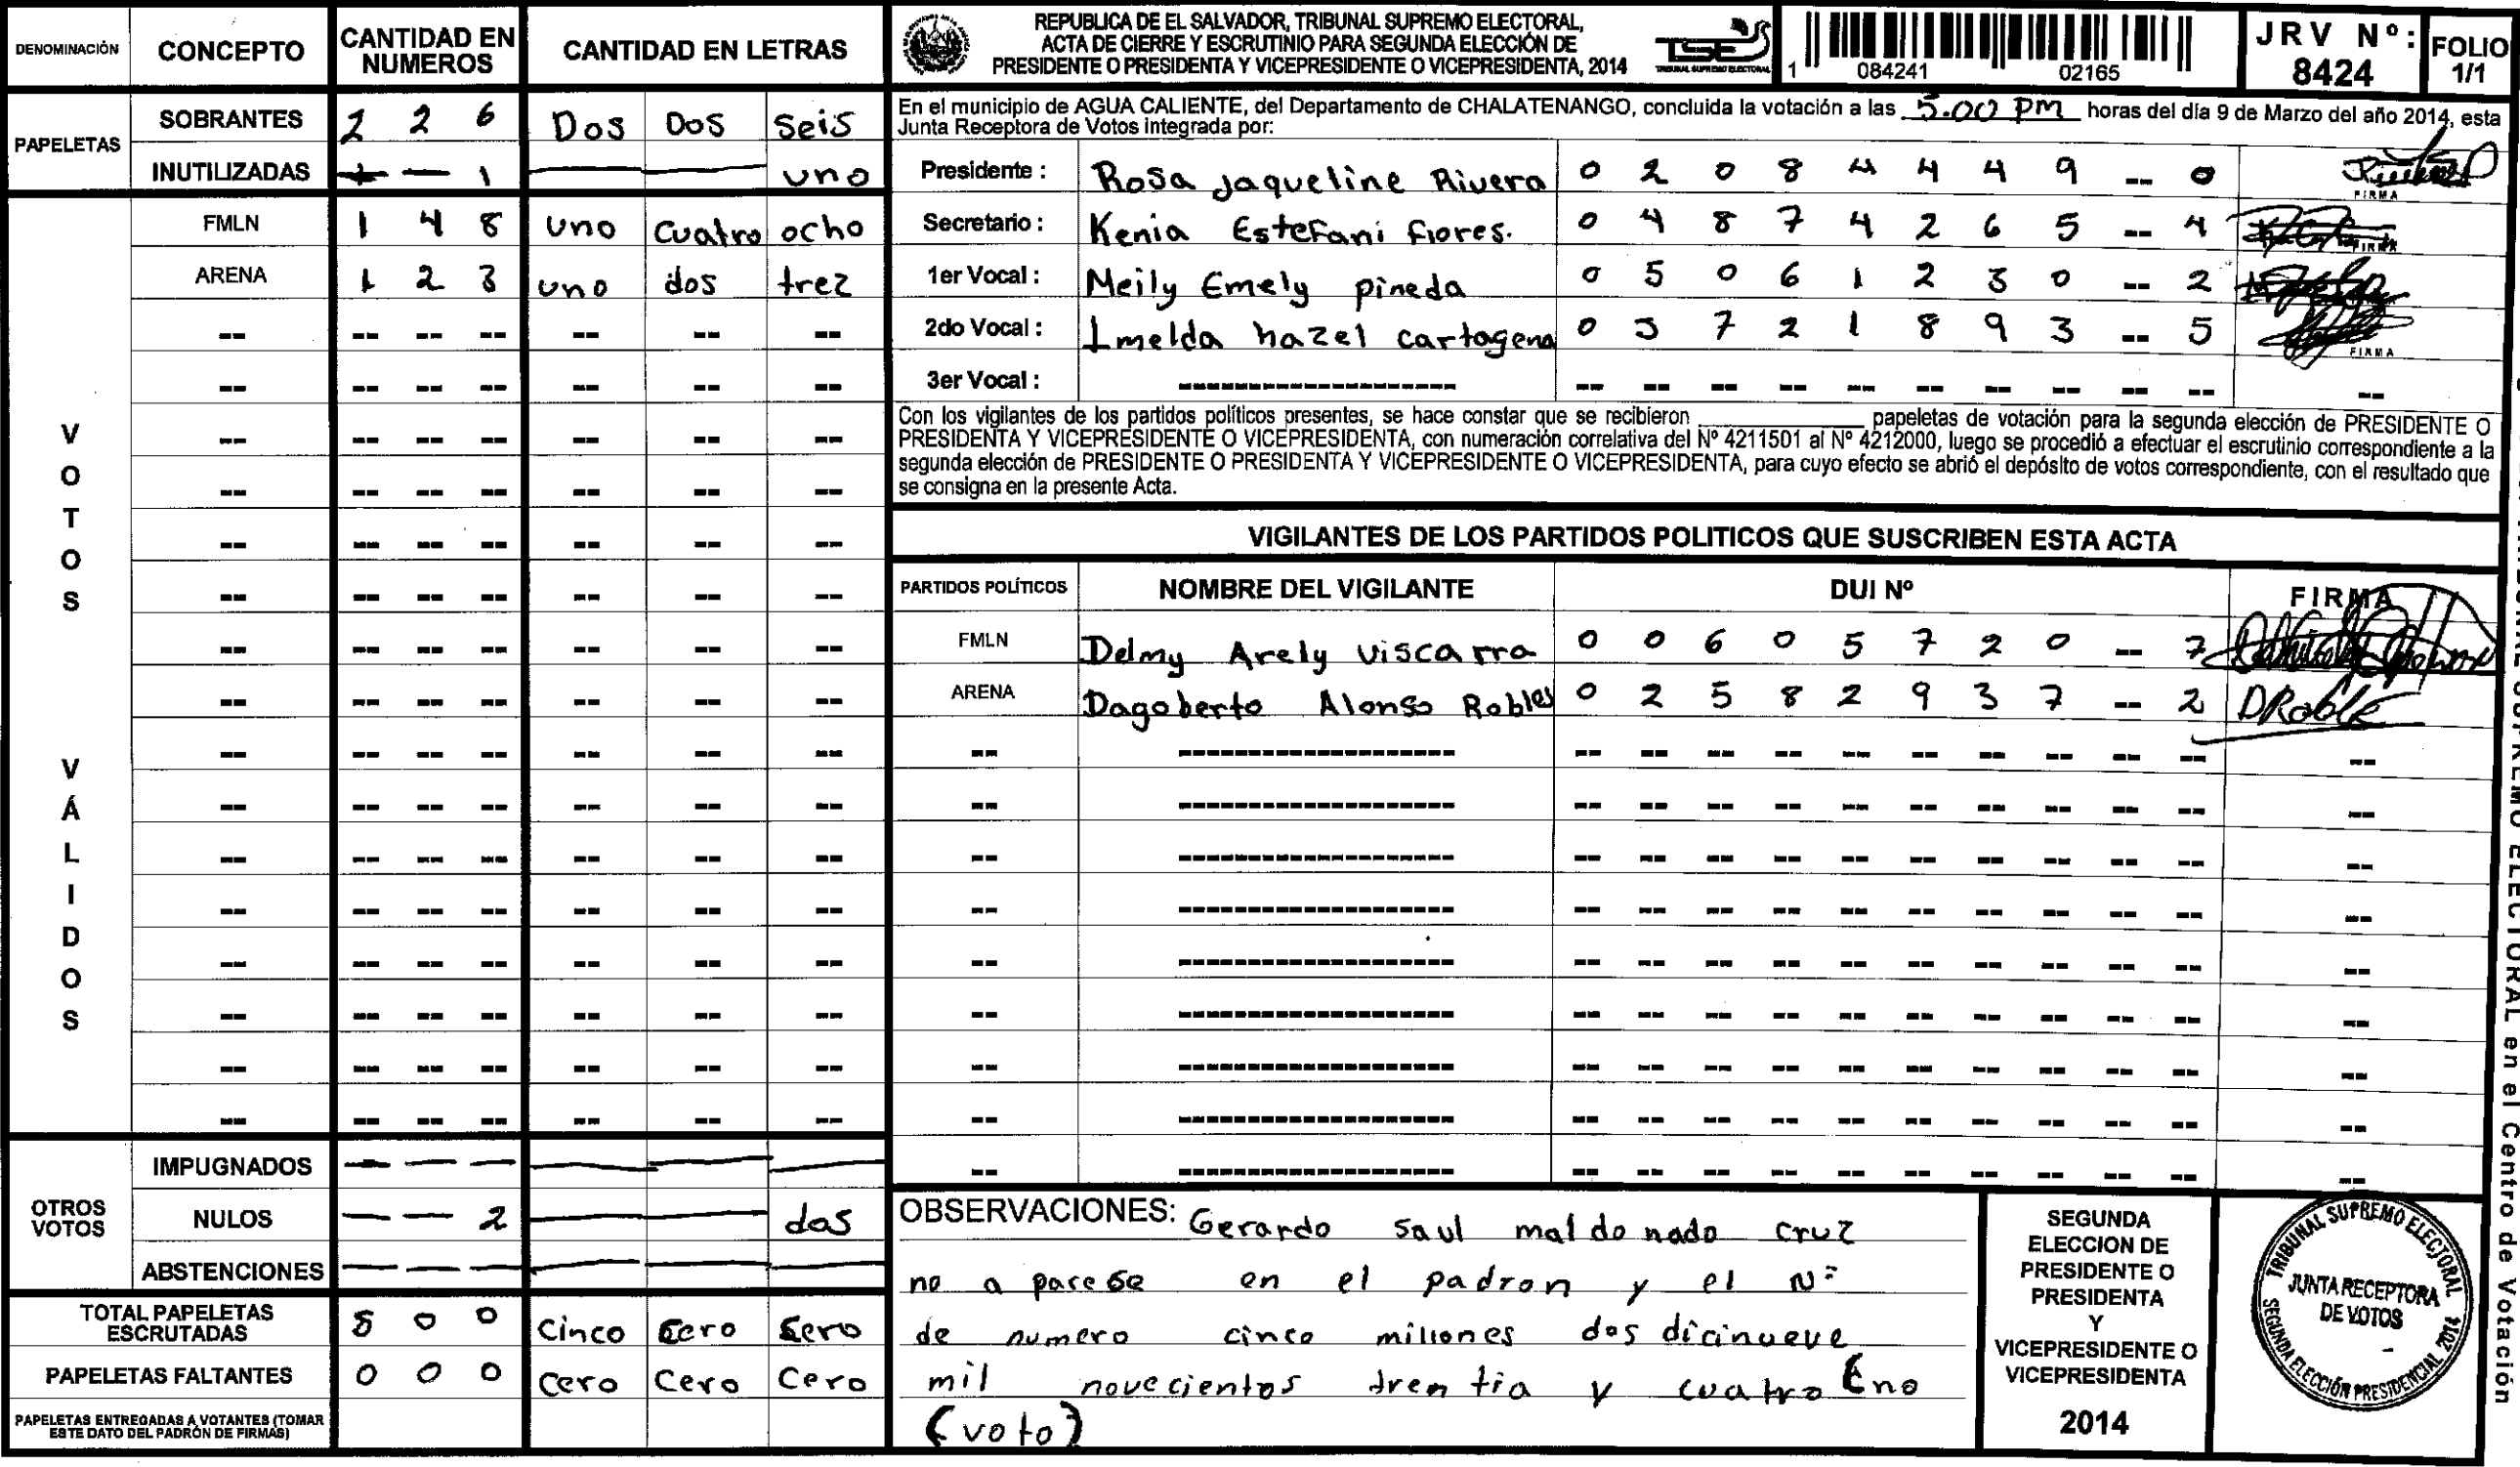 DENOMINACIÓN CONCEPTO CANTIDAD EN NUMEROS CANTIDAD EN LETRAS
PAPELETAS
SOBRANTES 2 2 6 Dos Dos Seis
INUTILIZADAS — — 1 — — uno
VOTOS VÁLIDOS
FMLN 1 4 8 uno cuatro ocho
ARENA 1 2 3 uno dos trez
OTROS VOTOS
IMPUGNADOS — — — — — —
NULOS — — 2 — — dos
ABSTENCIONES — — — — — —
TOTAL PAPELETAS ESCRUTADAS 5 0 0 Cinco Cero Cero
PAPELETAS FALTANTES 0 0 0 Cero Cero Cero
PAPELETAS ENTREGADAS A VOTANTES (TOMAR ESTE DATO DEL PADRÓN DE FIRMAS)
REPUBLICA DE EL SALVADOR, TRIBUNAL SUPREMO ELECTORAL,
ACTA DE CIERRE Y ESCRUTINIO PARA SEGUNDA ELECCIÓN DE
PRESIDENTE O PRESIDENTA Y VICEPRESIDENTE O VICEPRESIDENTA, 2014
TSE
TRIBUNAL SUPREMO ELECTORAL
1 084241 02165
JRV Nº: 8424
FOLIO 1/1
En el municipio de AGUA CALIENTE, del Departamento de CHALATENANGO, concluida la votación a las 5.00 PM horas del día 9 de Marzo del año 2014, esta
Junta Receptora de Votos integrada por:
Presidente : Rosa Jaqueline Rivera 0 2 0 8 4 4 4 9 -- 0 FIRMA
Secretario : Kenia Estefani flores. 0 4 8 7 4 2 6 5 -- 4 FIRMA
1er Vocal : Meily Emely pineda 0 5 0 6 1 2 3 0 -- 2
2do Vocal : Imelda hazel cartagena 0 3 7 2 1 8 9 3 -- 5 FIRMA
3er Vocal : -------------------- -- -- -- -- -- -- -- -- -- -- --
Con los vigilantes de los partidos políticos presentes, se hace constar que se recibieron __________ papeletas de votación para la segunda elección de PRESIDENTE O
PRESIDENTA Y VICEPRESIDENTE O VICEPRESIDENTA, con numeración correlativa del Nº 4211501 al Nº 4212000, luego se procedió a efectuar el escrutinio correspondiente a la
segunda elección de PRESIDENTE O PRESIDENTA Y VICEPRESIDENTE O VICEPRESIDENTA, para cuyo efecto se abrió el depósito de votos correspondiente, con el resultado que
se consigna en la presente Acta.
VIGILANTES DE LOS PARTIDOS POLITICOS QUE SUSCRIBEN ESTA ACTA
PARTIDOS POLÍTICOS NOMBRE DEL VIGILANTE DUI Nº FIRMA
FMLN Delmy Arely viscarra 0 0 6 0 5 7 2 0 -- 7
ARENA Dagoberto Alonso Robles 0 2 5 8 2 9 3 7 -- 2 DRoble
OBSERVACIONES: Gerardo saul maldonado cruz
no a parese en el padron y el Nº
de numero cinco millones dos dicinueve
mil novecientos trentia y cuatro (no
(voto)
SEGUNDA
ELECCION DE
PRESIDENTE O
PRESIDENTA
Y
VICEPRESIDENTE O
VICEPRESIDENTA
2014
TRIBUNAL SUPREMO ELECTORAL
JUNTA RECEPTORA
DE VOTOS
SEGUNDA ELECCIÓN PRESIDENCIAL 2014
SUPREMO ELECTORAL en el Centro de Votación